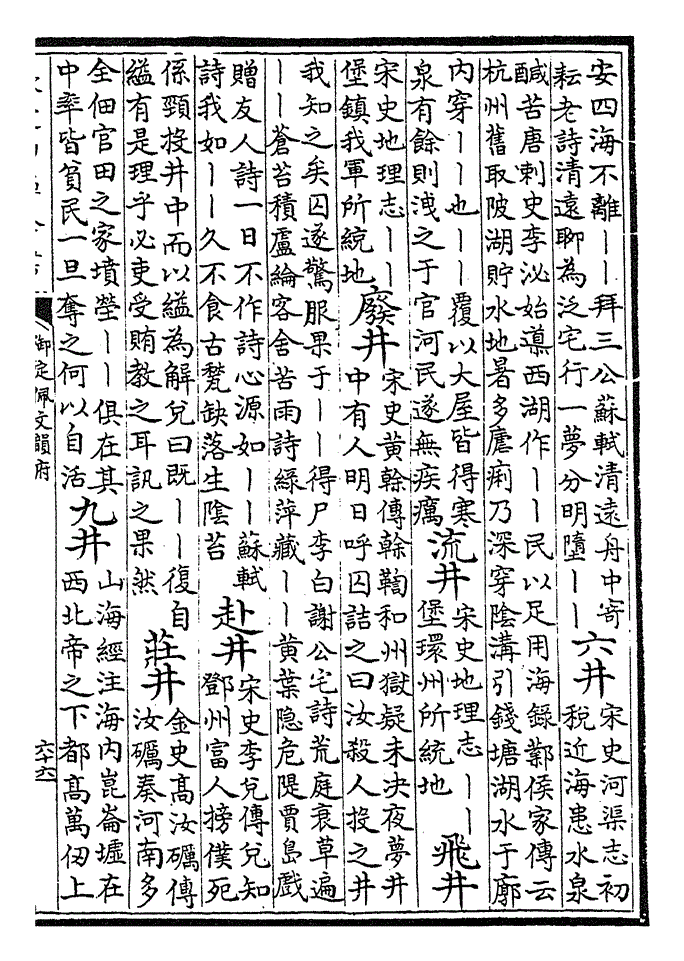 安四海不離丨丨拜三公蘇軾清遠舟中寄
耘老詩清遠聊為泛宅行一夢分明墮丨丨
六井
宋史河渠志初
稅近海患水泉
醎苦唐刺史李泌始導西湖作丨丨民以足用海錄鄴侯家傳云
杭州舊取陂湖貯水地暑多瘧痢乃深穿陰溝引錢塘湖水于廓
内穿丨丨也丨丨覆以大屋皆得寒
泉有餘則洩之于官河民遂無疾癘
流井
宋史地理志丨丨
堡環州所統地
飛井
宋史地理志丨丨
堡鎮我軍所統地
廢井
宋史黄榦傳榦鞫和州獄疑未決夜夢井
中有人明日呼囚詰之曰汝殺人投之井
我知之矣囚遂驚服果于丨丨得尸李白謝公宅詩荒庭衰草遍
丨丨蒼苔積盧綸客舍苦雨詩綠萍藏丨丨黄葉隐危隄賈島戲
贈友人詩一日不作詩心源如丨丨蘇軾
詩我如丨丨久不食古甃缺落生陰苔
赴井
宋史李兌傳兌知
鄧州富人搒僕死
係頸投井中而以縊為解兌曰既丨丨復自
縊有是理乎必吏受賄教之耳訊之果然
莊井
金史高汝礪傳
汝礪奏河南多
全佃官田之家墳塋丨丨俱在其
中率皆貧民一旦奪之何以自活
九井
山海經注海内崑崙墟在
西北帝之下都高萬仞上
御定佩文韻府
六十六